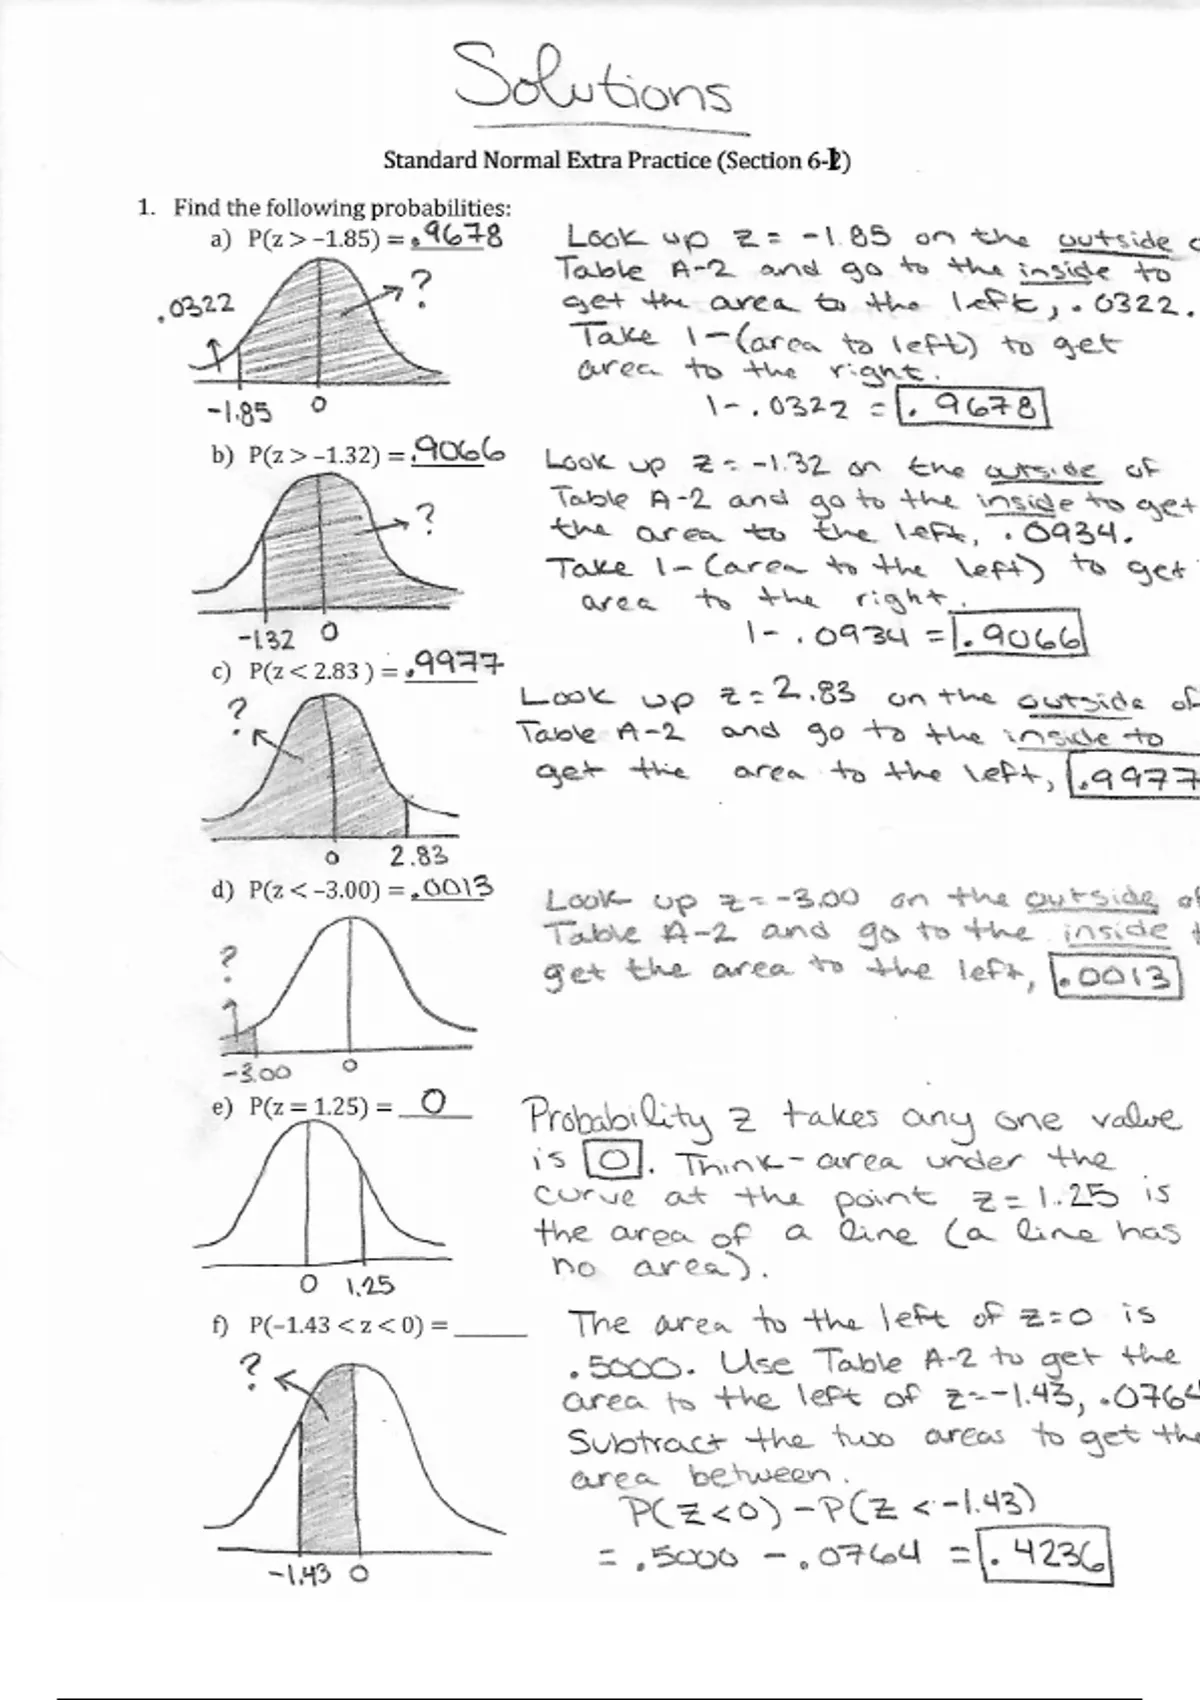 Solutions
Standard Normal Extra Practice (Section 6-2)
1. Find the following probabilities:
a) P(z > −1.85) = .9678
.0322
?
-1.85 0
Look up z = -1.85 on the outside
Table A-2 and go to the inside to
get the area to the left, .0322.
Take 1-(area to left) to get
area to the right.
1-.0322 = .9678
b) P(z > −1.32) = .9066
?
-1.32 0
Look up z = -1.32 on the outside of
Table A-2 and go to the inside to get
the area to the left, .0934.
Take 1-(area to the left) to get
area to the right.
1- .0934 = .9066
c) P(z < 2.83 ) = .9977
?
0 2.83
Look up z = 2.83 on the outside of
Table A-2 and go to the inside to
get the area to the left, .9977
d) P(z < −3.00) = .0013
?
-3.00 0
Look up z = -3.00 on the outside of
Table A-2 and go to the inside
get the area to the left, .0013
e) P(z = 1.25) = 0
0 1.25
Probability z takes any one value
is 0. Think - area under the
curve at the point z = 1.25 is
the area of a line (a line has
no area).
f) P(−1.43 < z < 0) = ______
?
-1.43 0
The area to the left of z=0 is
.5000. Use Table A-2 to get the
area to the left of z=-1.43, .0764
Subtract the two areas to get the
area between.
P(z<0) - P(z < -1.43)
= .5000 - .0764 = .4236